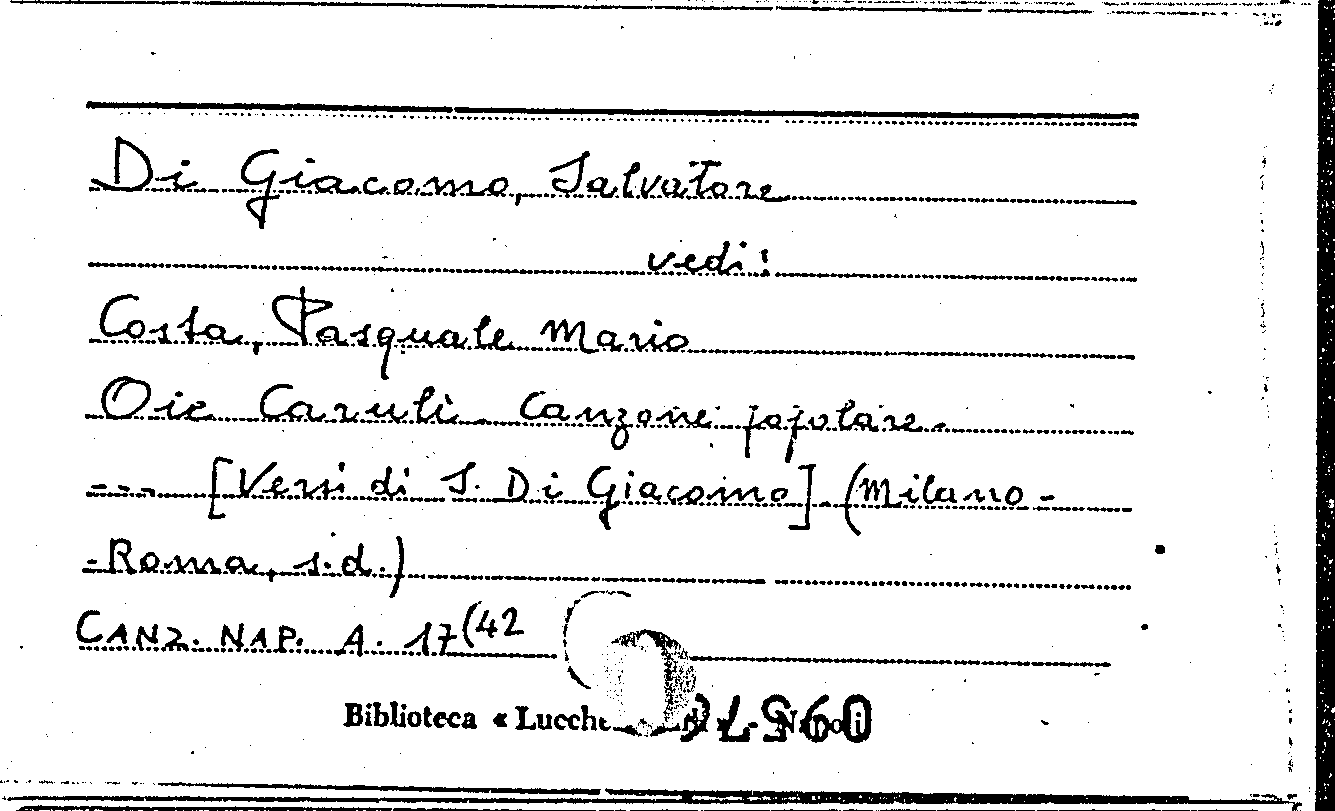 Di Giacomo, Salvatore
vedi:
Costa, Pasquale Mario
Oie Carulì. Canzone popolare.
--- [Versi di S. Di Giacomo]. (Milano-
-Roma, s.d.)
CANZ. NAP. A. 17(42
Biblioteca « Lucche